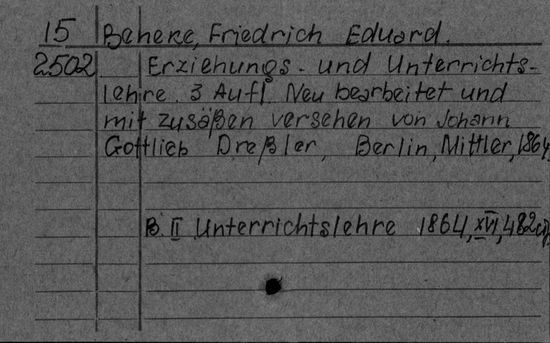 15 Beheke, Friedrich Eduard.
2502 Erziehungs- und Unterrichts-
lehre. 3 Aufl. Neu bearbeitet und
mit zusäßen versehen von Johann
Gottlieb Dreßler, Berlin, Mittler, 1864
B. II Unterrichtslehre 1864, XVI, 482